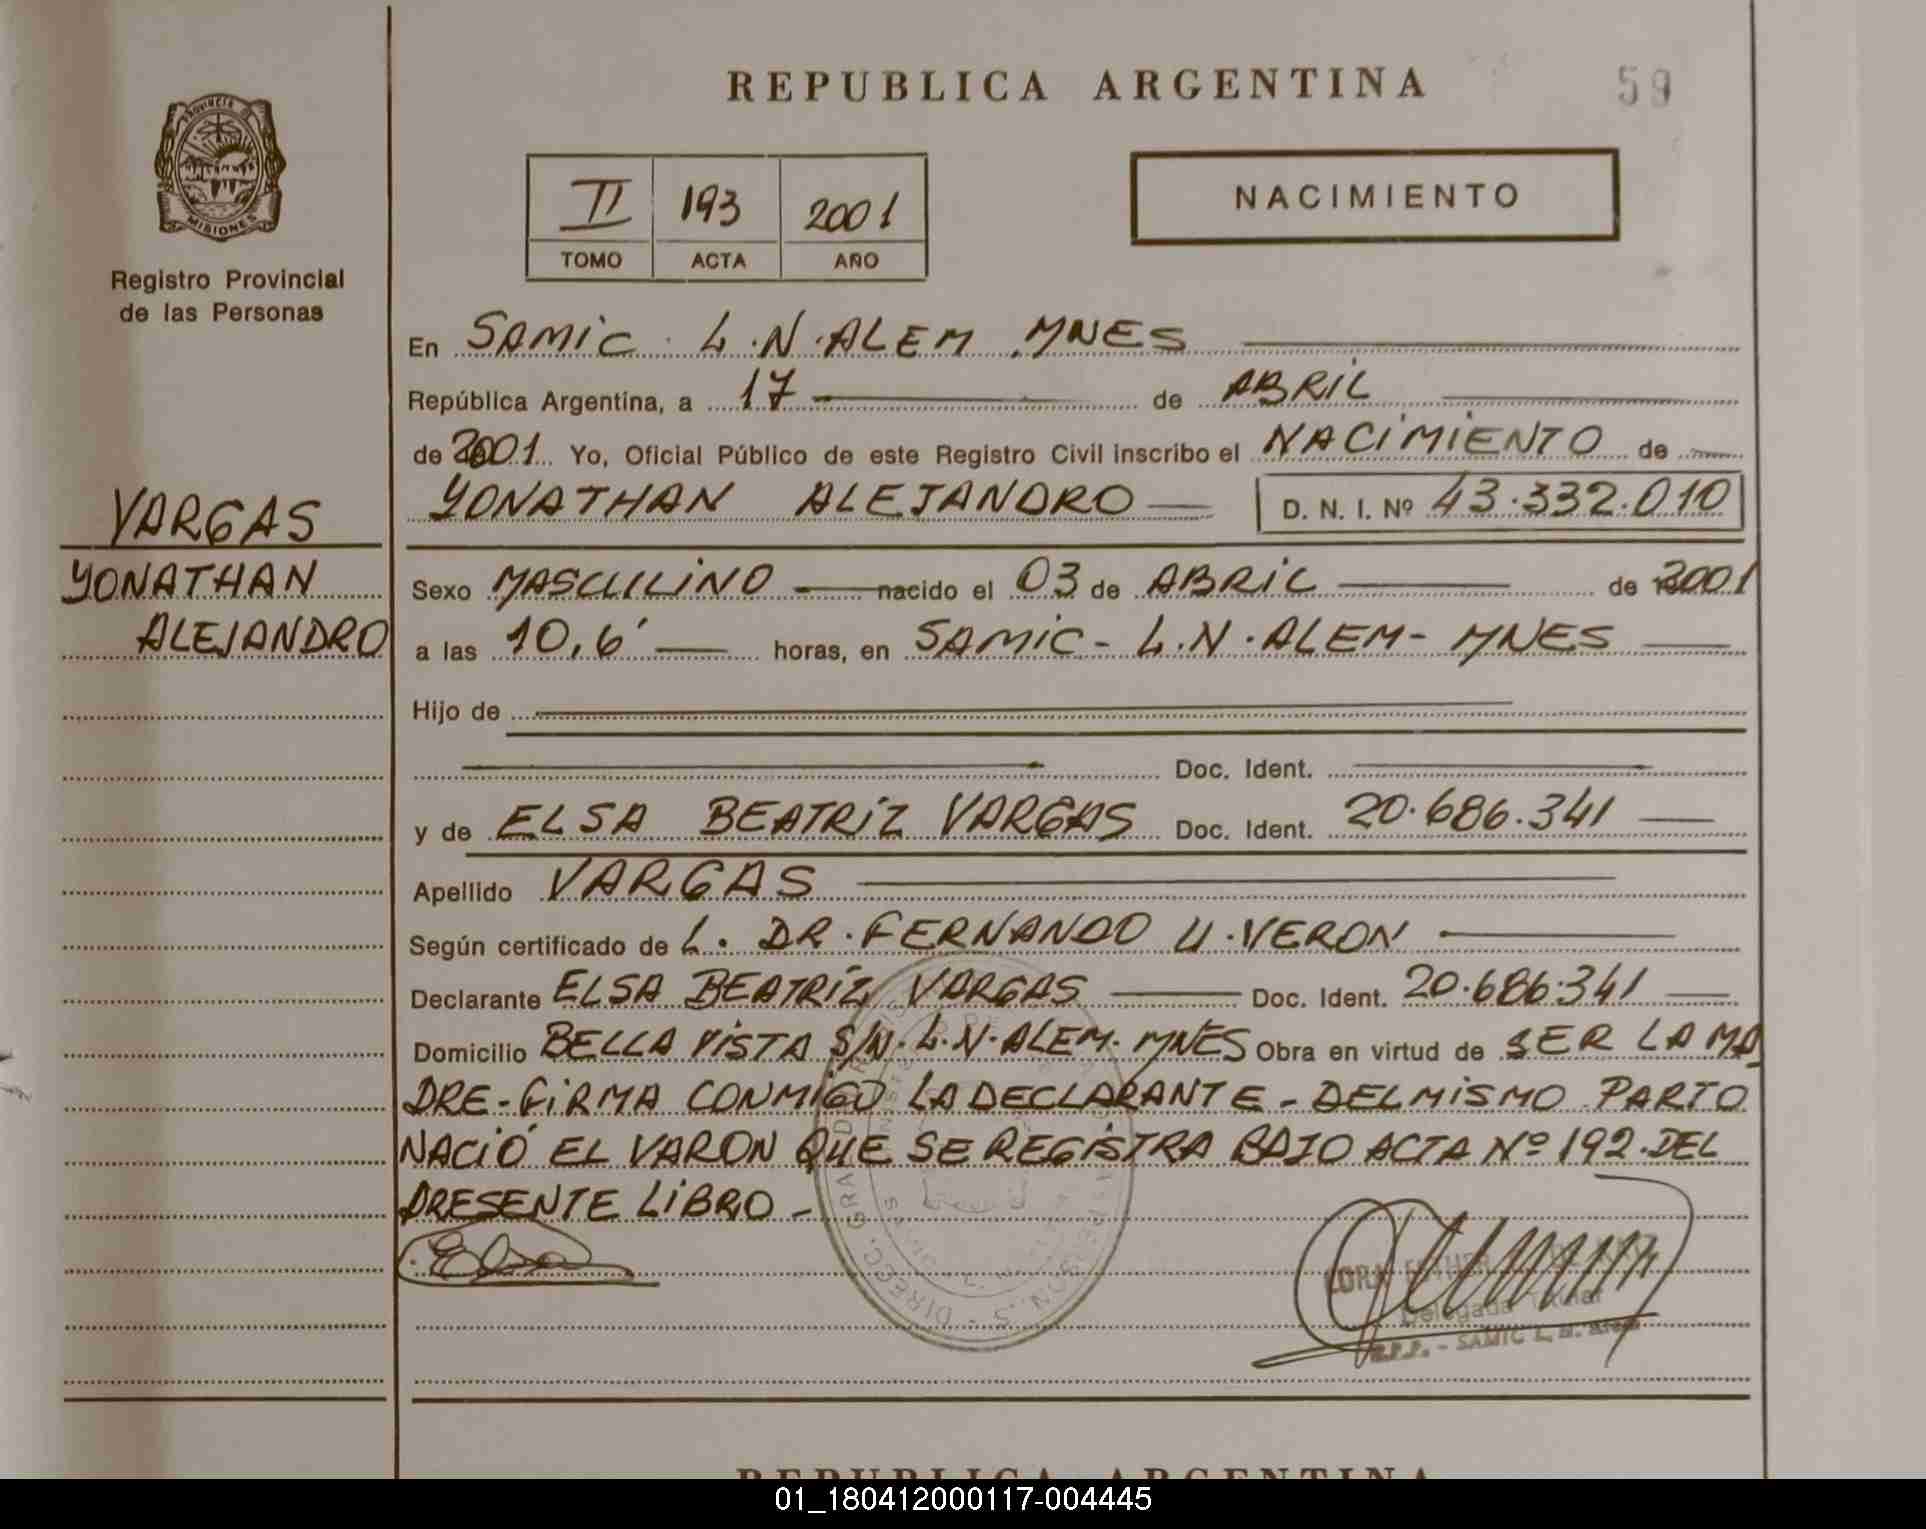 REPUBLICA ARGENTINA
59
PROVINCIA DE
MISIONES
Registro Provincial
de las Personas
II 193 2001
TOMO ACTA AÑO
NACIMIENTO
En SAMIC L.N. ALEM MNES
República Argentina, a 17 de ABRIL
de 2001 Yo, Oficial Público de este Registro Civil inscribo el NACIMIENTO de
YONATHAN ALEJANDRO D. N. I. Nº 43.332.010
VARGAS
YONATHAN
ALEJANDRO
Sexo MASCULINO nacido el 03 de ABRIL de 2001
a las 10,6' horas, en SAMIC - L.N. ALEM - MNES
Hijo de
Doc. Ident.
y de ELSA BEATRIZ VARGAS Doc. Ident. 20.686.341
Apellido VARGAS
Según certificado de L. DR. FERNANDO U. VERON
Declarante ELSA BEATRIZ VARGAS Doc. Ident. 20.686.341
Domicilio BELLA VISTA S/N. L.N. ALEM. MNES Obra en virtud de SER LA MA
DRE - FIRMA CONMIGO LA DECLARANTE - DEL MISMO PARTO
NACIÓ EL VARON QUE SE REGISTRA BAJO ACTA Nº 192. DEL
PRESENTE LIBRO -
Elsa
Delegada Titular
R.P.P. - SAMIC L. N. Alem
REPUBLICA ARGENTINA
01_180412000117-004445